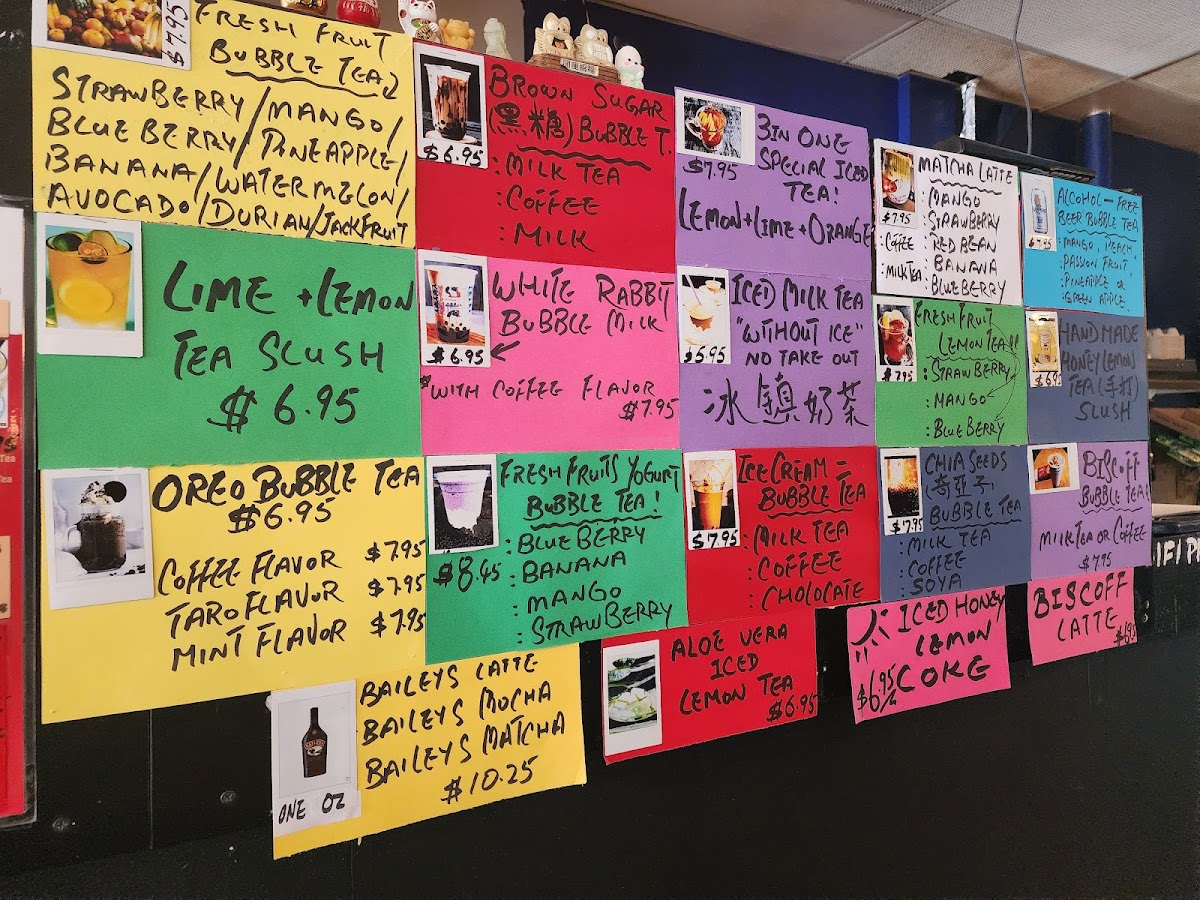 $7.95
FRESH FRUIT
BUBBLE TEA
STRAWBERRY/MANGO/
BLUEBERRY/PINEAPPLE/
BANANA/WATERMELON/
AVOCADO/DURIAN/JACKFRUIT
BROWN SUGAR
(黑糖) BUBBLE T.
$6.95
: MILK TEA
: COFFEE
: MILK
3 IN ONE
SPECIAL ICED
TEA!
$7.95
LEMON+LIME+ORANGE
MATCHA LATTE
$7.95
: MANGO
: STRAWBERRY
: COFFEE : RED BEAN
: MILK TEA : BANANA
: BLUEBERRY
ALCOHOL-FREE
BEER BUBBLE TEA
$7.95
: MANGO, PEACH
: PASSION FRUIT
: PINEAPPLE OR
: GREEN APPLE
LIME + LEMON
TEA SLUSH
$6.95
WHITE RABBIT
BUBBLE MILK
$6.95
*WITH COFFEE FLAVOR
$7.95
ICED MILK TEA
"WITHOUT ICE"
$5.95
NO TAKE OUT
冰鎮奶茶
FRESH FRUIT
LEMON TEA!!
$7.95
: STRAWBERRY
: MANGO
: BLUEBERRY
HAND MADE
HONEY LEMON
TEA (手打)
SLUSH
OREO BUBBLE TEA
$6.95
COFFEE FLAVOR $7.95
TARO FLAVOR $7.95
MINT FLAVOR $7.95
FRESH FRUITS YOGURT
BUBBLE TEA!
$8.45
: BLUEBERRY
: BANANA
: MANGO
: STRAWBERRY
ICE CREAM -
BUBBLE TEA
$7.95
: MILK TEA
: COFFEE
: CHOLOCATE
CHIA SEEDS
(奇亞子)
BUBBLE TEA
$7.95
: MILK TEA
: COFFEE
: SOYA
BISCOFF
BUBBLE TEA!
MILK TEA OR COFFEE
$7.95
BAILEYS LATTE
BAILEYS MOCHA
BAILEYS MATCHA
$10.25
ONE OZ
ALOE VERA
ICED
LEMON TEA
$6.95
ICED HONEY
LEMON
COKE
$6.95
BISCOFF
LATTE
$6.95